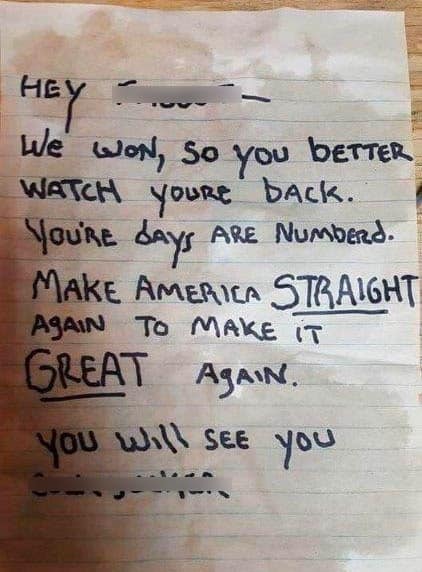 HEY
We WON, SO YOU bETTER
WATCH YOURE bACK.
YOU'RE dAYS ARE NUMbERd.
MAKE AMERICA STRAIGHT
AgAIN TO MAKE iT
GREAT AgAIN.
YOU WIll SEE YOU